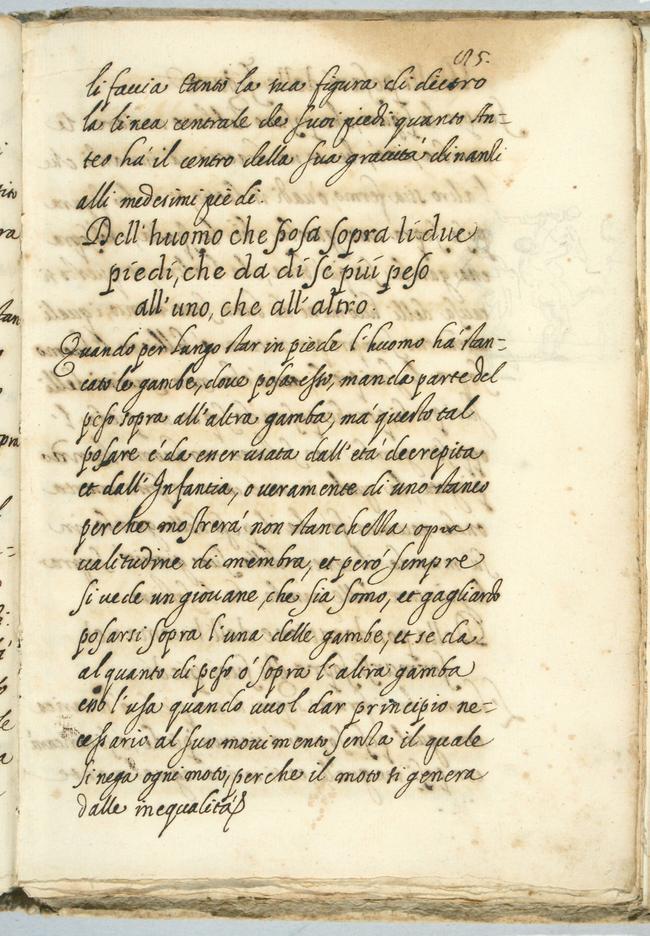 85.
li faccia tanto la sua figura di dietro
la linea centrale de suoi piedi quanto An=
teo há il centro della sua gravitá dinanzi
alli medesimi piedi.
Dell'huomo che posa sopra li due
piedi, che da di se piú peso
all'uno, che all'altro.
Quando per lungo star in piede l'huomo há stan=
cato le gambe, dove posa esso, manda parte del
peso sopra all'altra gamba, má questo tal
posare é da ener usata dall'etá decrepita
et dall'Infantia, o veramente di uno stanco
perche mostrerá non stanchezza o pra
valitudine di membra, et peró sempre
si vede un giovane, che sia sono, et gagliardo
posarsi sopra l'una delle gambe, et se da
alquanto di peso ó sopra l'altra gamba
esso l'usa quando vuol dar principio ne=
cessario al suo movimento senza il quale
si nega ogni moto, perche il moto si genera
dalle inequalitá